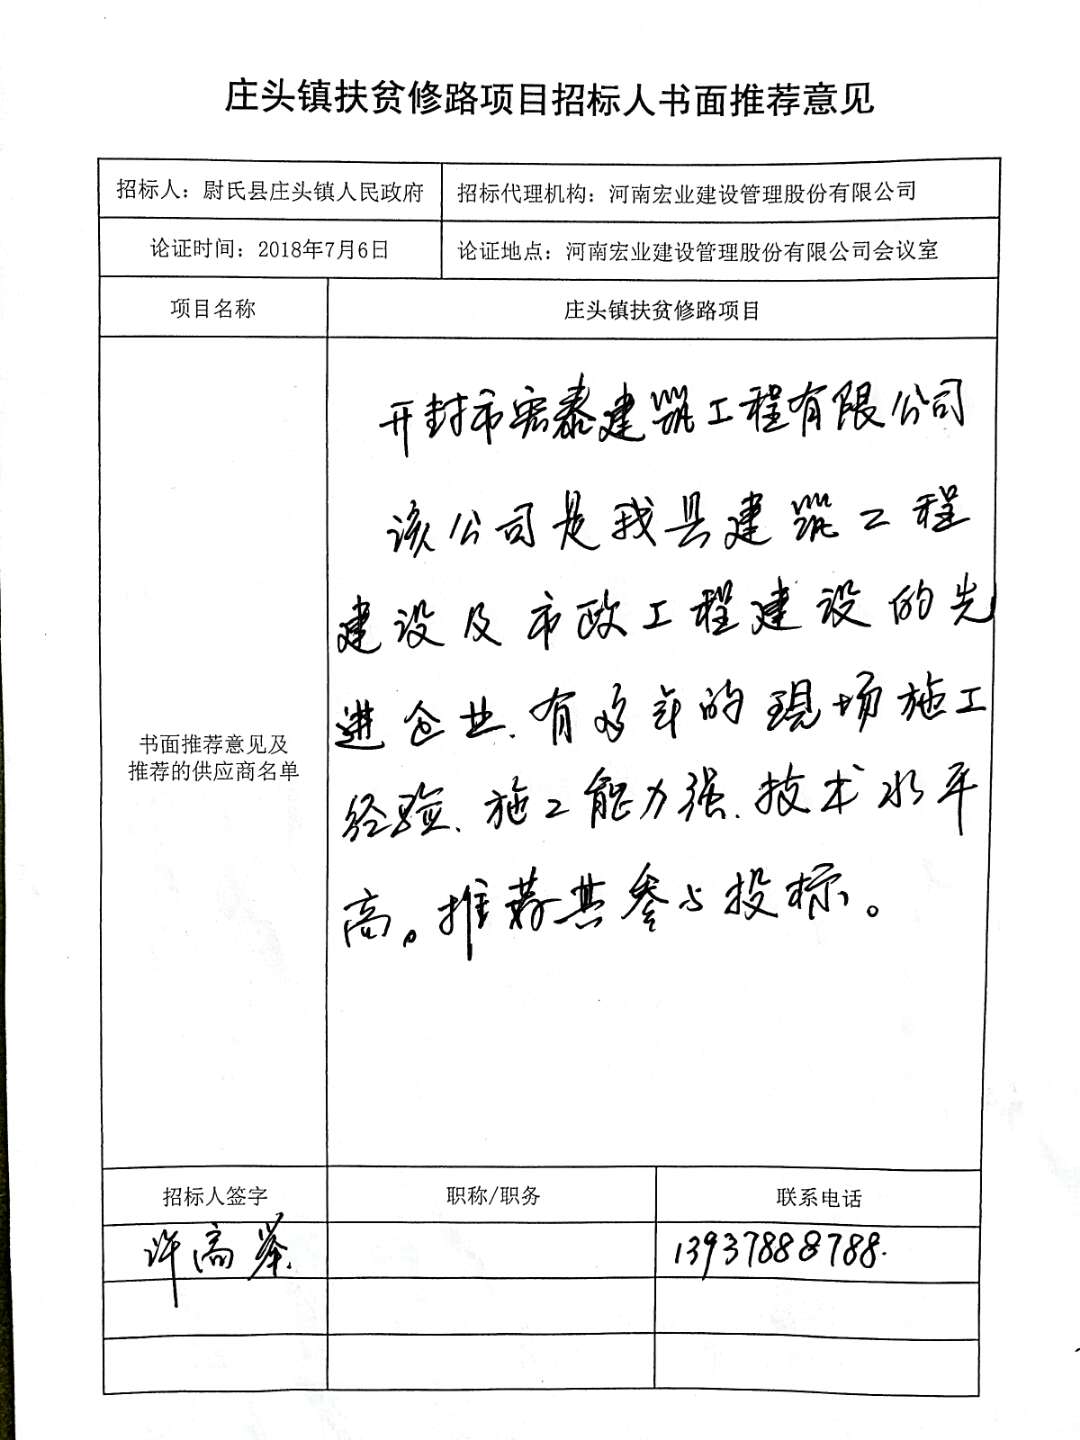 庄头镇扶贫修路项目招标人书面推荐意见
招标人：尉氏县庄头镇人民政府
招标代理机构：河南宏业建设管理股份有限公司
论证时间：2018年7月6日
论证地点：河南宏业建设管理股份有限公司会议室
项目名称
庄头镇扶贫修路项目
书面推荐意见及
推荐的供应商名单
开封市宏泰建筑工程有限公司
该公司是我县建筑工程
建设及市政工程建设的先
进企业、有多年的现场施工
经验、施工能力强、技术水平
高。推荐其参与投标。
招标人签字
职称/职务
联系电话
许高举
13937888788.